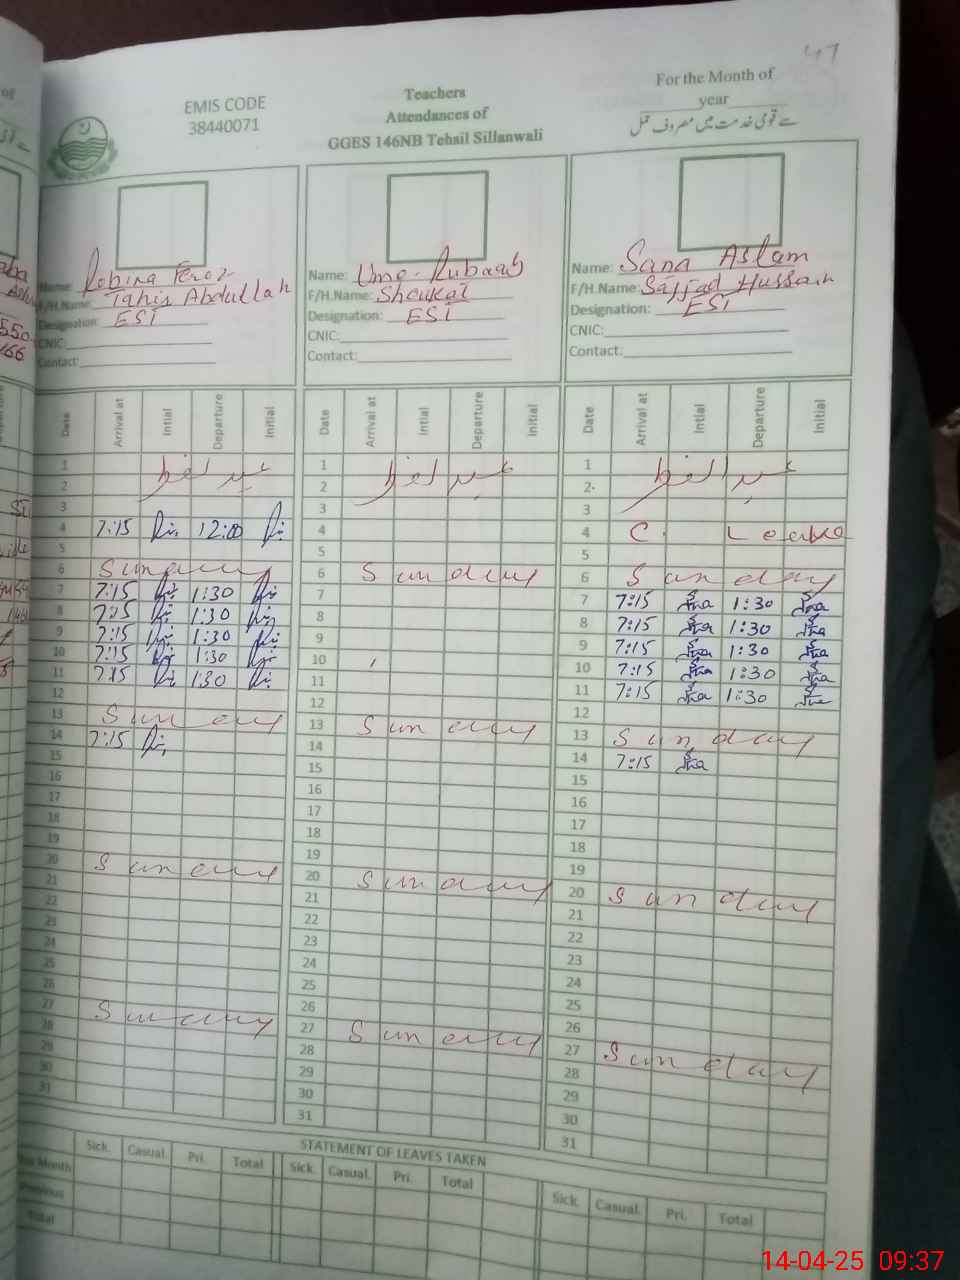 47
EMIS CODE
38440071
Teachers
Attendances of
GGES 146NB Tehsil Sillanwali
For the Month of
year
سے قومی خدمت میں مصروف عمل
Name: Robina Feroz
F/H.Name: Tahir Abdullah
Designation: EST
CNIC:
Contact:
Name: Ume-Rubaab
F/H.Name: Shoukat
Designation: EST
CNIC:
Contact:
Name: Sana Aslam
F/H.Name: Sajjad Hussain
Designation: EST
CNIC:
Contact:
Date Arrival at Intial Departure Initial
1 عید الفطر
2
3
4 7:15 12:00
5
6 Sunday
7 7:15 1:30
8 7:15 1:30
9 7:15 1:30
10 7:15 1:30
11 7:15 1:30
12
13 Sunday
14 7:15
15
16
17
18
19
20 Sunday
21
22
23
24
25
26
27 Sunday
28
29
30
31
Date Arrival at Intial Departure Initial
1 عید الفطر
2
3
4
5
6 Sunday
7
8
9
10
11
12
13 Sunday
14
15
16
17
18
19
20 Sunday
21
22
23
24
25
26
27 Sunday
28
29
30
31
Date Arrival at Intial Departure Initial
1 عید الفطر
2
3
4 C. Leave
5
6 Sunday
7 7:15 1:30
8 7:15 1:30
9 7:15 1:30
10 7:15 1:30
11 7:15 1:30
12
13 Sunday
14 7:15
15
16
17
18
19
20 Sunday
21
22
23
24
25
26
27 Sunday
28
29
30
31
STATEMENT OF LEAVES TAKEN
Sick. Casual. Pri. Total Sick. Casual. Pri. Total Sick. Casual. Pri. Total
Month
Total
14-04-25 09:37